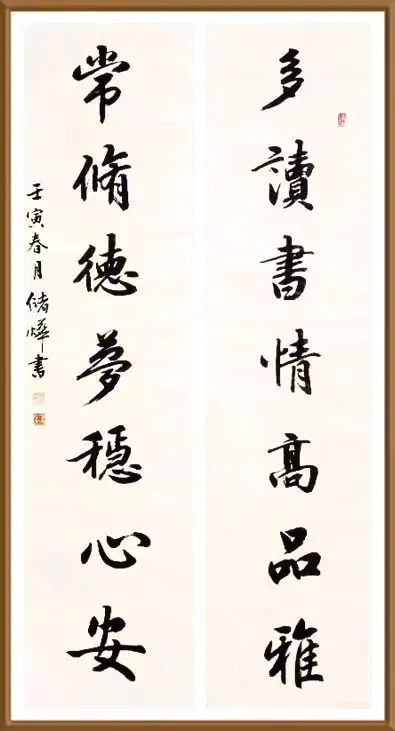 多讀書情高品雅
常脩德夢穩心安
壬寅春月儲燁書